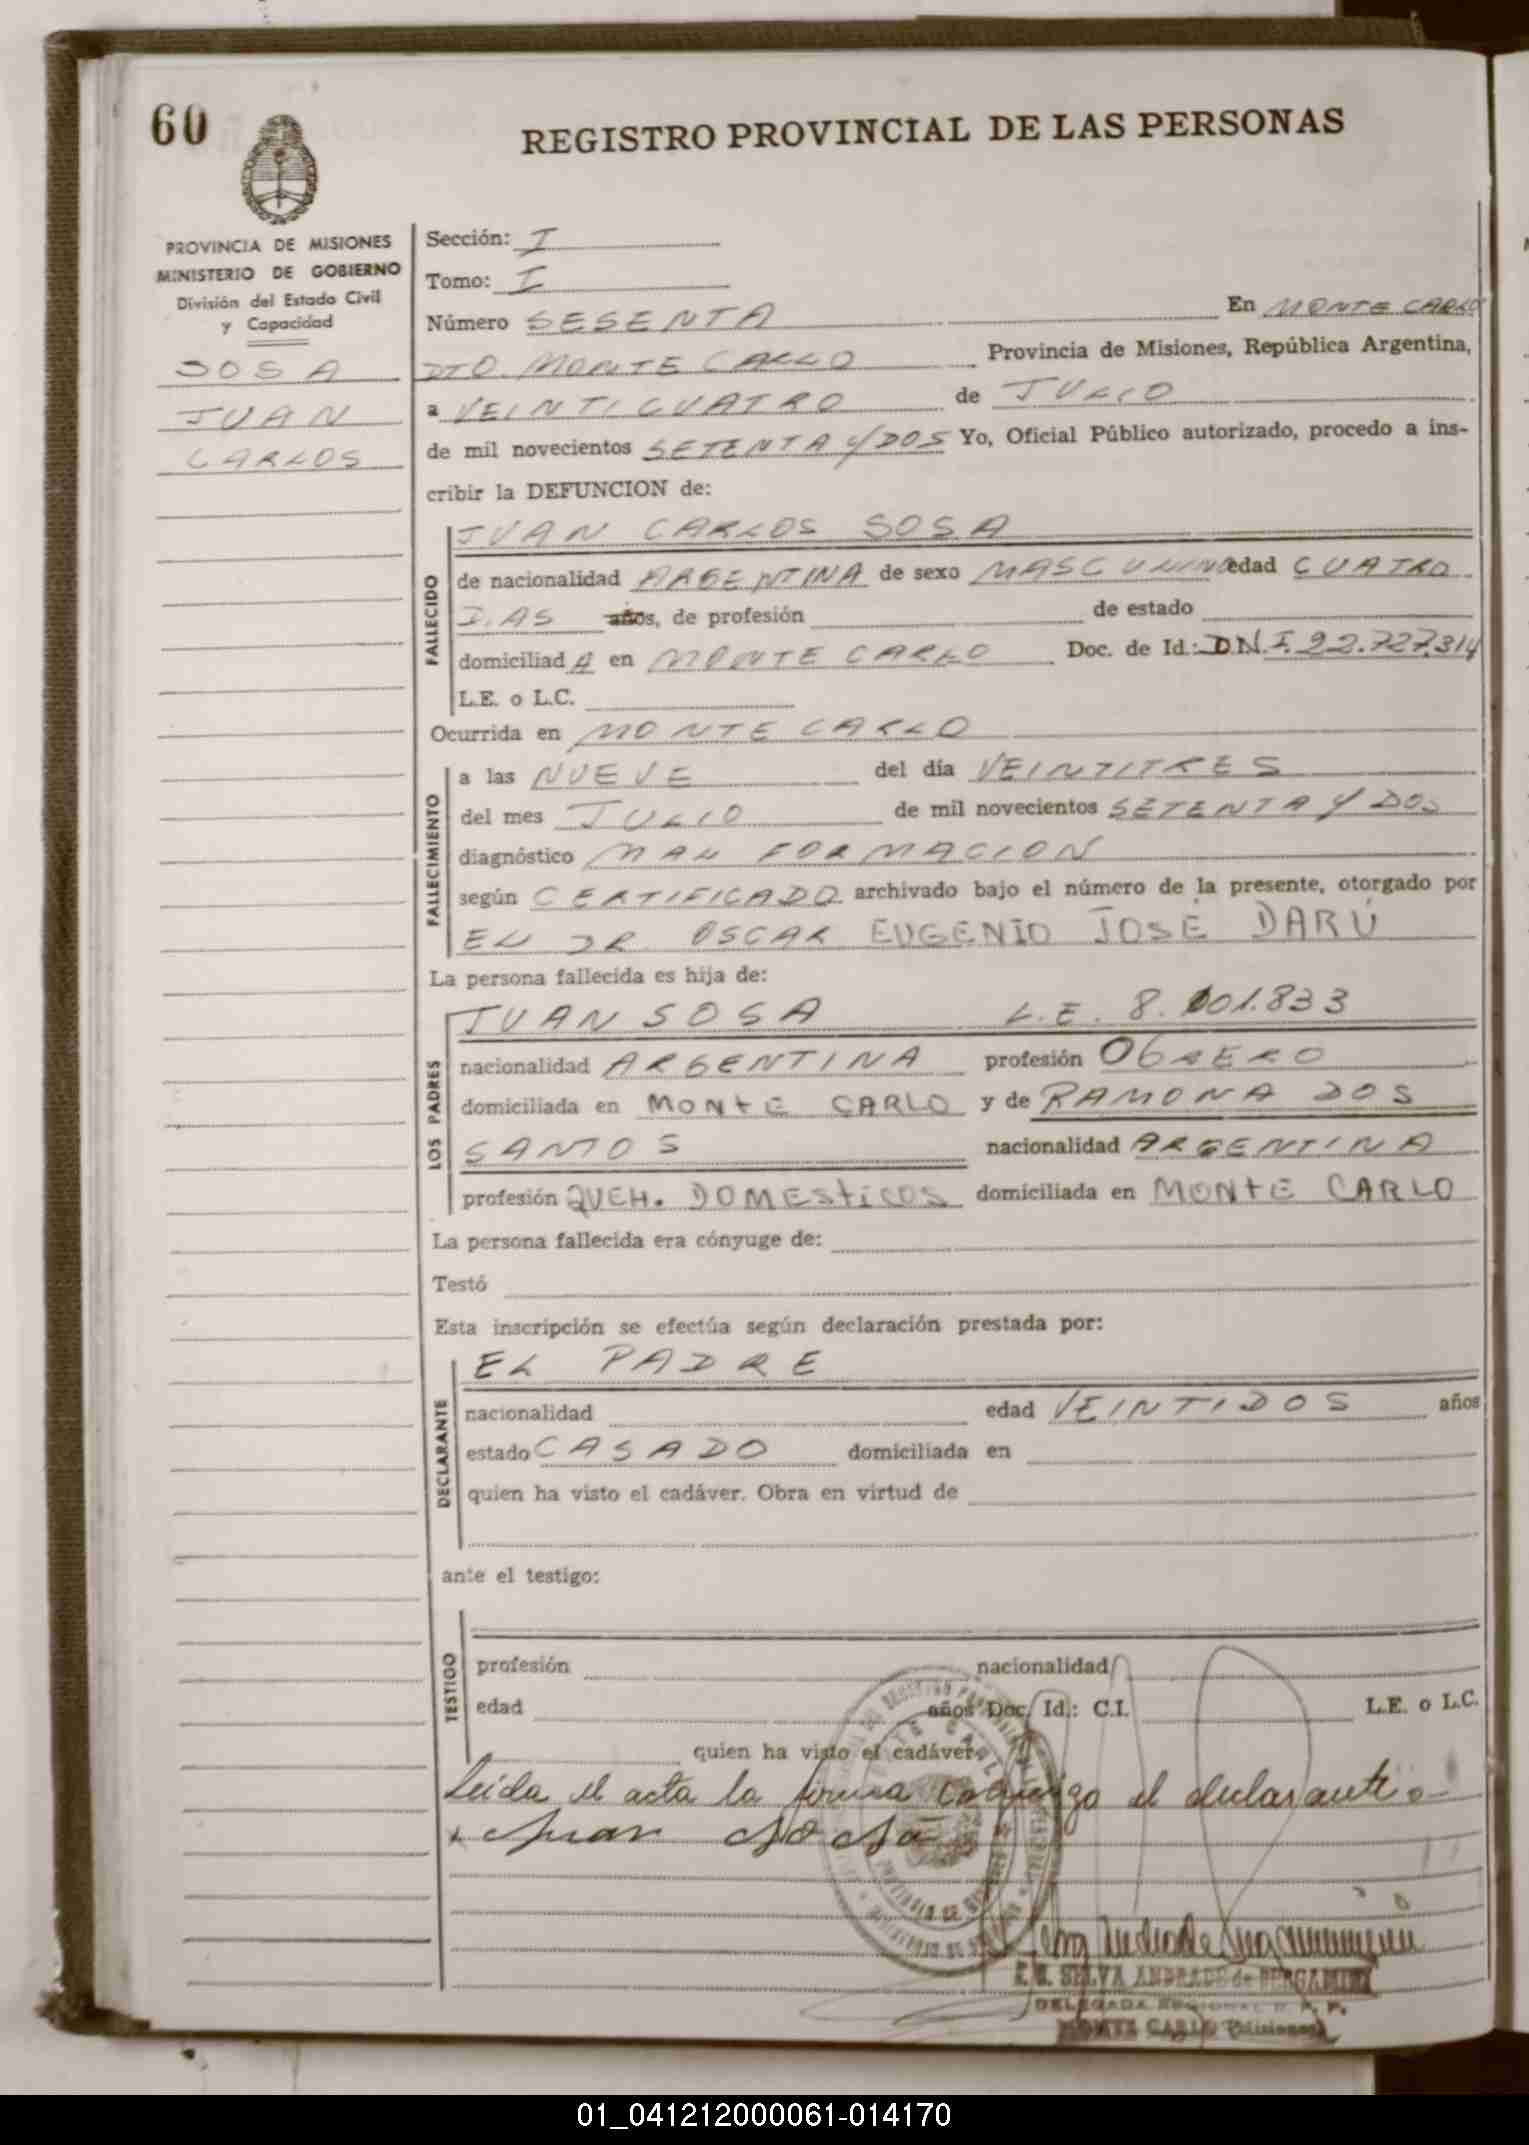 60
REGISTRO PROVINCIAL DE LAS PERSONAS
PROVINCIA DE MISIONES
MINISTERIO DE GOBIERNO
División del Estado Civil
y Capacidad
SOSA
JUAN
CARLOS
Sección: I
Tomo: I
Número SESENTA En MONTE CARLO
DTO. MONTE CARLO Provincia de Misiones, República Argentina,
a VEINTICUATRO de JULIO
de mil novecientos SETENTA Y DOS Yo, Oficial Público autorizado, procedo a ins-
cribir la DEFUNCION de:
FALLECIDO
JUAN CARLOS SOSA
de nacionalidad ARGENTINA de sexo MASCULINO edad CUATRO
DIAS años, de profesión de estado
domiciliadA en MONTE CARLO Doc. de Id.: D.N.I. 22.727.314
L.E. o L.C.
Ocurrida en MONTE CARLO
FALLECIMIENTO
a las NUEVE del día VEINTITRES
del mes JULIO de mil novecientos SETENTA Y DOS
diagnóstico MAL FORMACION
según CERTIFICADO archivado bajo el número de la presente, otorgado por
EL DR. OSCAR EUGENIO JOSÉ DARÚ
La persona fallecida es hija de:
LOS PADRES
JUAN SOSA L.E. 8.001.833
nacionalidad ARGENTINA profesión OBRERO
domiciliada en MONTE CARLO y de RAMONA DOS
SANTOS nacionalidad ARGENTINA
profesión QUEH. DOMESTICOS domiciliada en MONTE CARLO
La persona fallecida era cónyuge de:
Testó
Esta inscripción se efectúa según declaración prestada por:
DECLARANTE
EL PADRE
nacionalidad edad VEINTIDOS años
estado CASADO domiciliada en
quien ha visto el cadáver. Obra en virtud de
ante el testigo:
TESTIGO
profesión nacionalidad
edad años Doc. Id.: C.I. L.E. o L.C.
quien ha visto el cadáver
Leída el acta la firma conmigo el declarante.-
x Juan Sosa
SELVA ANDRADE de BERGAMINI
DELEGADA REGIONAL R. P. P.
MONTE CARLO (Misiones)
01_041212000061-014170